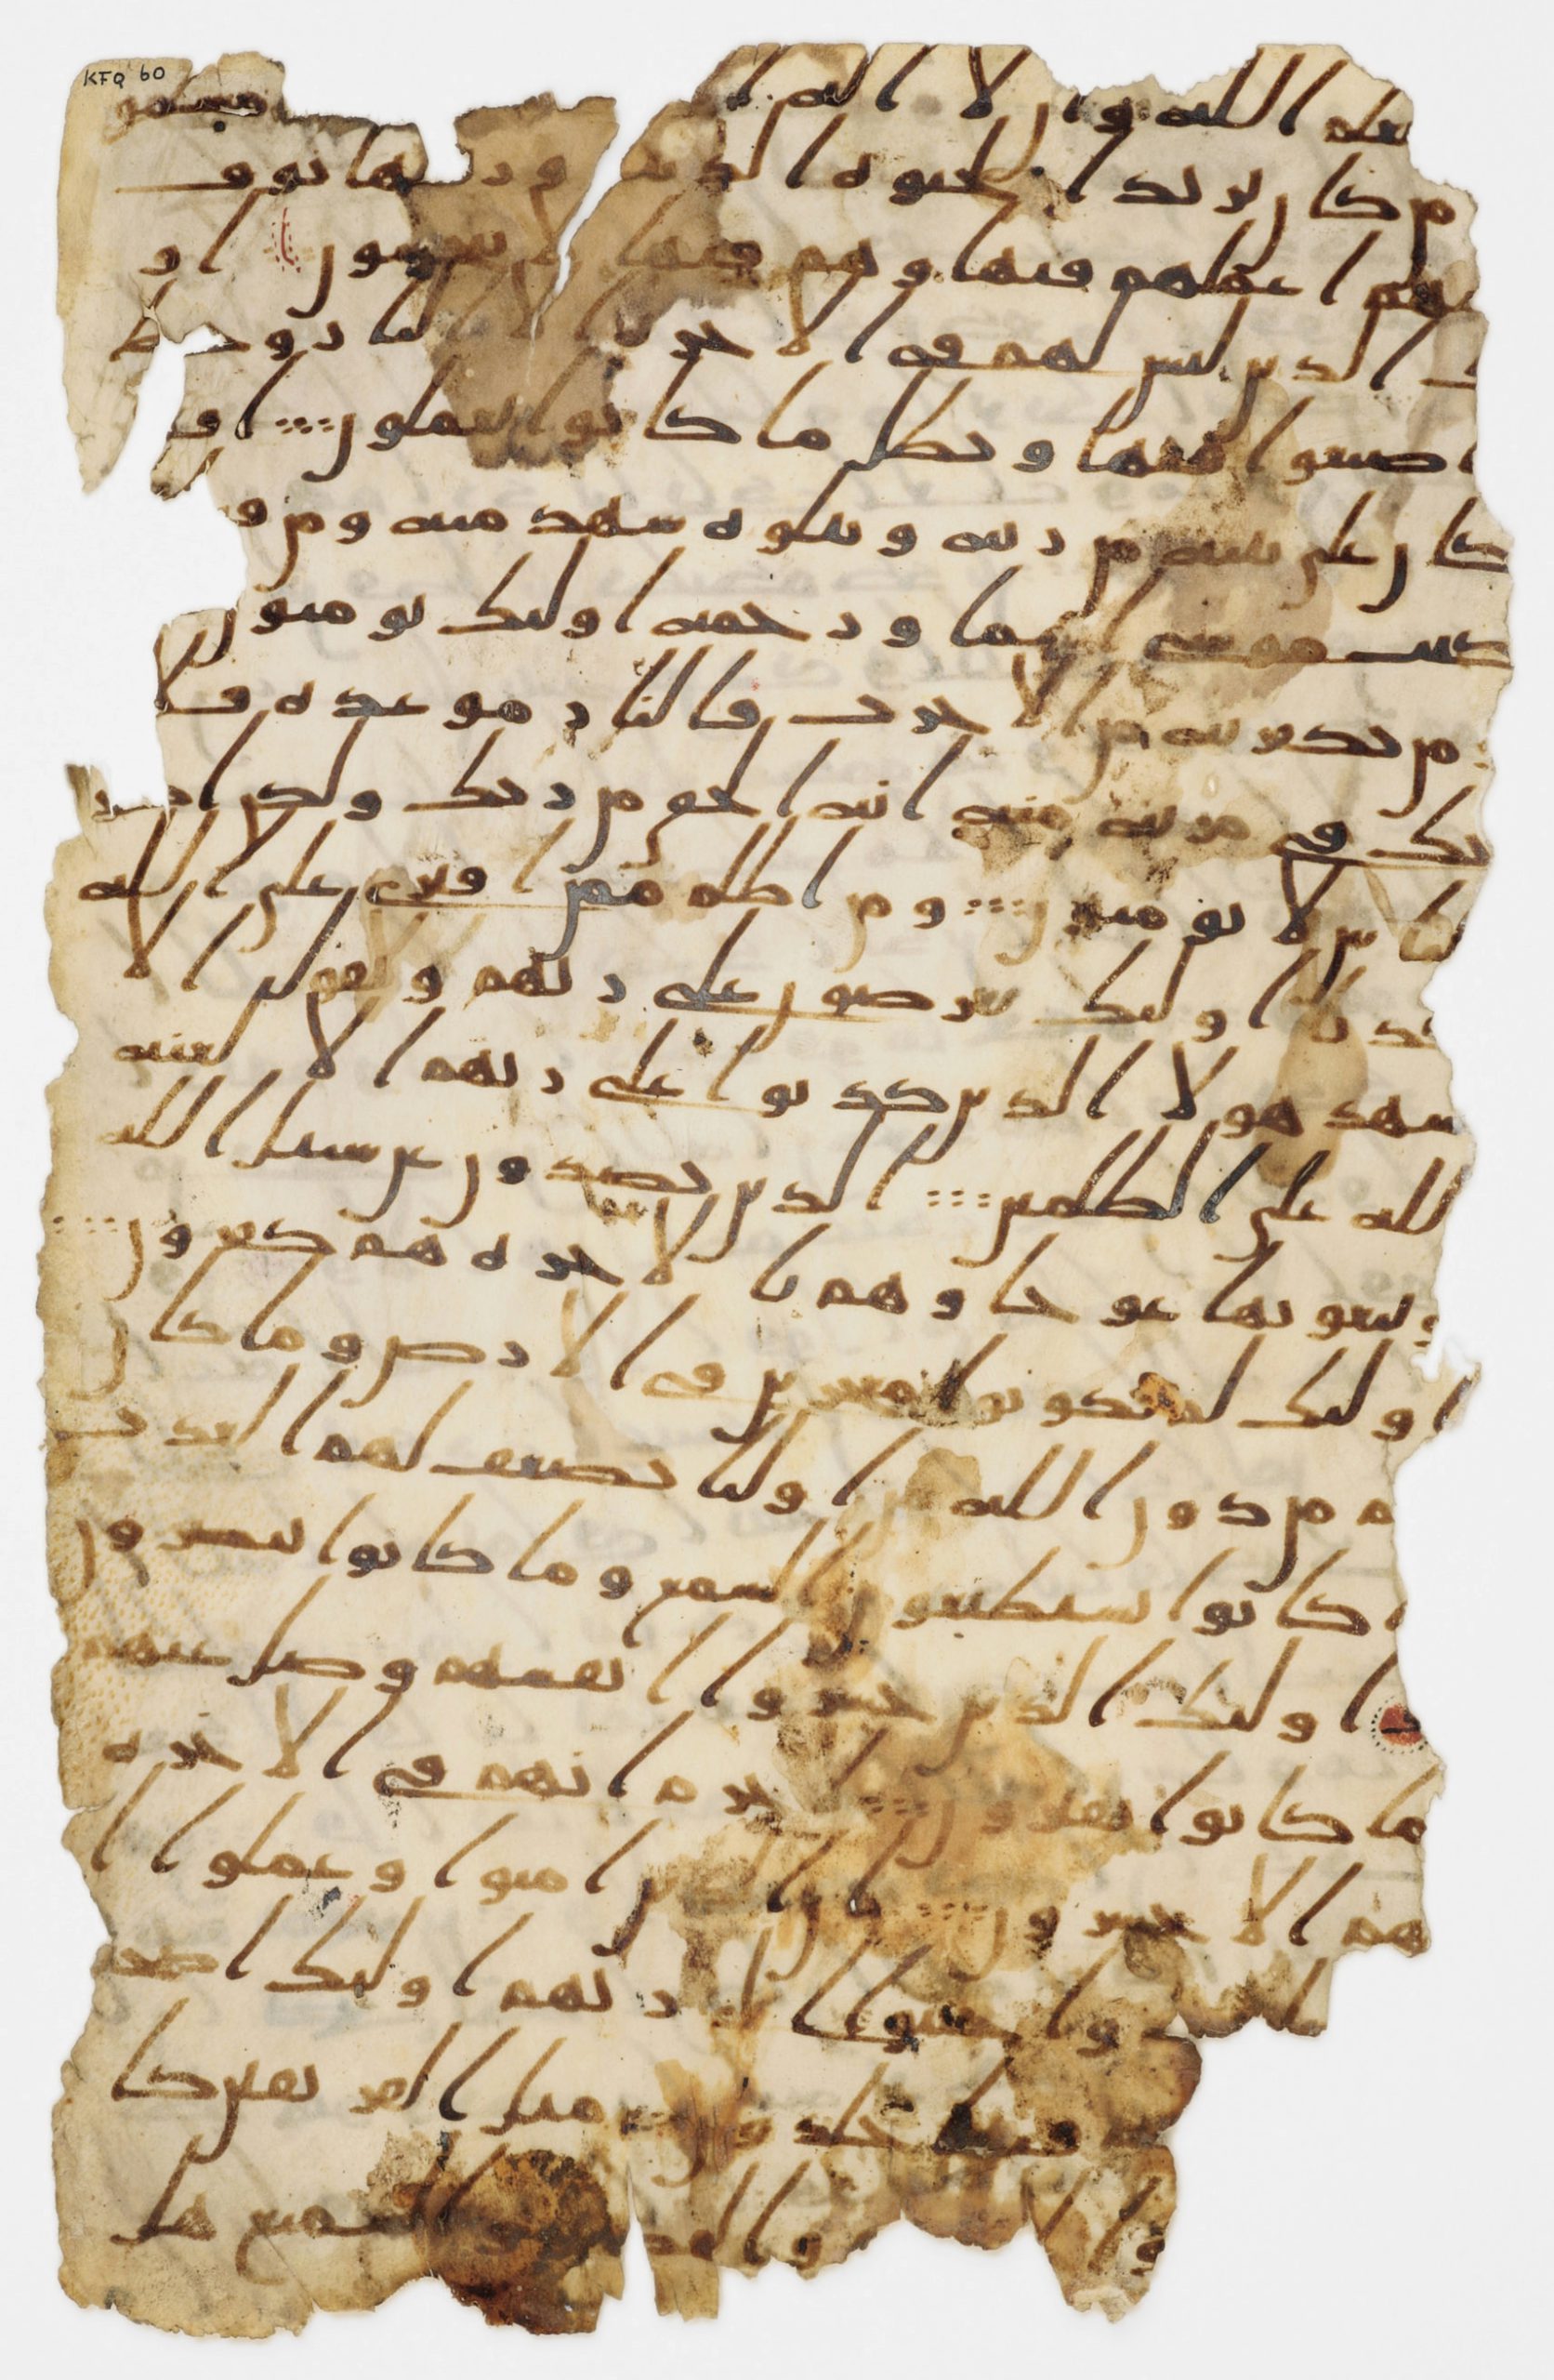 بعلم الله وان لا اله ا مسلمو
من كان يريد الحيوه الدنيا وزينتها نوف
اليهم اعملهم فيها وهم فيها لا يبخسون او
لئك الذين ليس لهم في الاخره الا النار وحبط
ما صنعوا فيها وبطل ما كانوا يعملون افـ
كان على بينه من ربه ويتلوه شهد منه ومن
كتب موسى اماما ورحمه اولئك يومنون
من يكفر به من الاحزب فالنار موعده فلا
تك في مريه منه انه الحق من ربك ولكن اكثر
الناس لا يومنون ومن اظلم ممن افترى على الله
كذبا اولئك يعرضون على ربهم ويقول الا
شهد هولا الذين كذبوا على ربهم الا لعنه
الله على الظلمين الذين يصدون عن سبيل الله
ويبغونها عوجا وهم بالاخره هم كفرون
اولئك لم يكونوا معجزين في الارض وما كان
لهم من دون الله من اوليا يضعف لهم العذب
ما كانوا يستطيعون السمع وما كانوا يبصرون
اولئك الذين خسروا انفسهم وضل عنهم
ما كانوا يفترون لا جرم انهم في الاخره
هم الاخسرون ان الذين امنوا وعملوا ا
واخبتوا الى ربهم اولئك اصحب
فيها خلدون مثل الفريقين كا
والبصير والسميع هل
KFQ 60